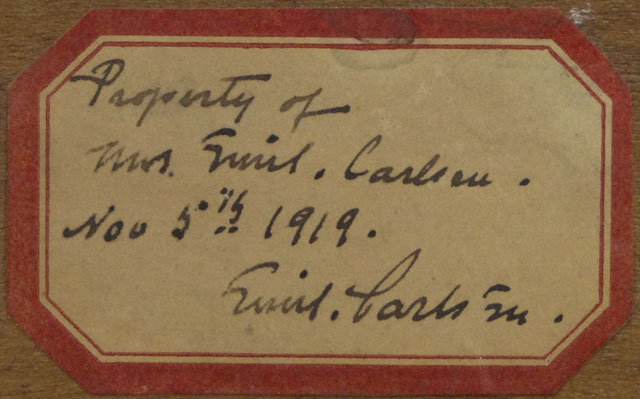 Property of
Mrs. Emil. Carlsen.
Nov 5th 1919.
Emil. Carlsen.